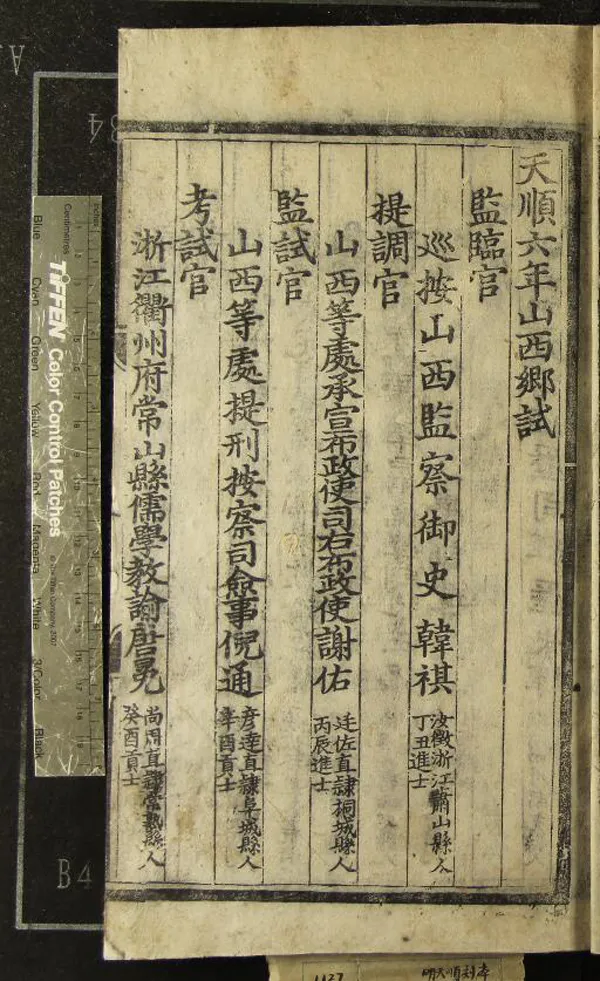 天順六年山西鄉試
監臨官
巡按山西監察御史韓祺
汝徵浙江蕭山縣人
丁丑進士
提調官
山西等處承宣布政使司右布政使謝佑
廷佐直隸桐城縣人
丙辰進士
監試官
山西等處提刑按察司僉事倪通
彥達直隸阜城縣人
辛酉貢士
考試官
浙江衢州府常山縣儒學教諭唐冕
尚周直隸常熟縣人
癸酉貢士
B4
Inches
Centimetres
TIFFEN Color Control Patches
© The Tiffen Company, 2007
Blue
Cyan
Green
Yellow
Red
Magenta
White
3/Color
Black
明天順刻本